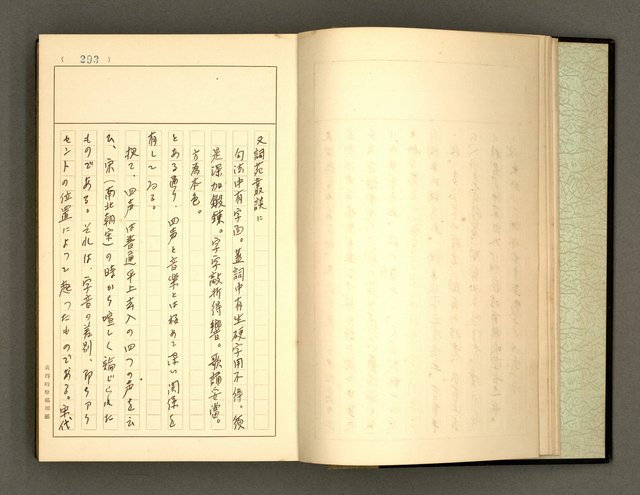 ( 293 )
又詞苑叢談に
句法中有字面。蓋詞中有生硬字用不得。須
是深加鍛鍊。字字敲打得響。歌誦妥當。
方為本色。
とある通り、四声と音楽とは極めて深い関係を
有してゐる。
扨て、四声は普通平上去入の四つの声を云
ひ、宋(南北朝宋)の時から喧しく論じられた
ものである。それは、字音の差別、即ちアク
セントの位置によつて起つたものである。宋代
黃得時原稿用紙